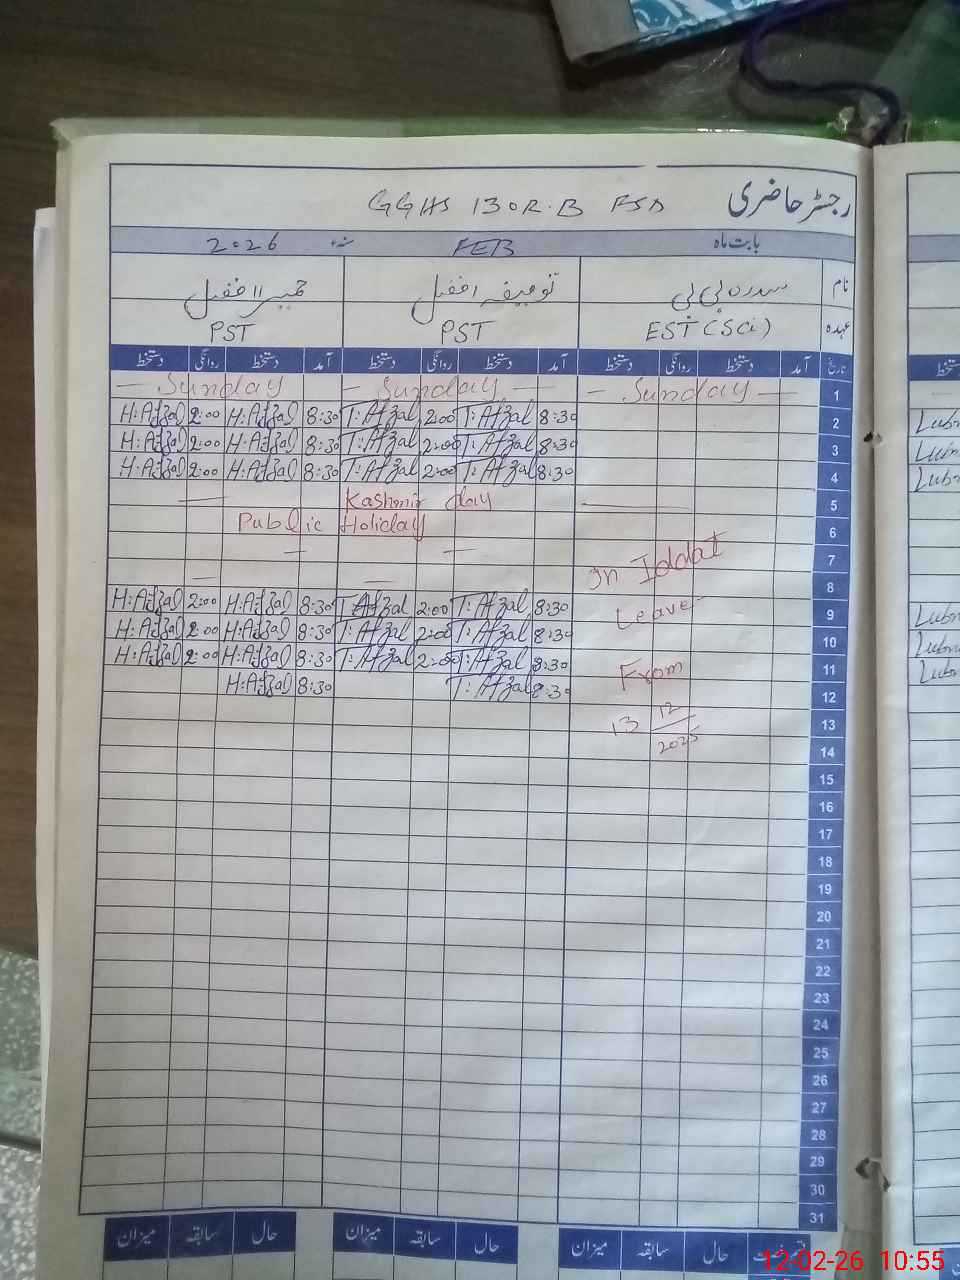 رجسٹر حاضری GGHS 130R.B FSD
بابت ماہ FEB سنہء 2026
نام سدرہ بی بی توصیفہ افضل حمیرا افضل
عہدہ EST (Sci) PST PST
تاریخ آمد دستخط روانگی دستخط آمد دستخط روانگی دستخط آمد دستخط روانگی دستخط
— Sunday — Sunday — — Sunday — 1
H:Afzal 2:00 H:Afzal 8:30 T:Afzal 2:00 T:Afzal 8:30 2 Lubn
H:Afzal 2:00 H:Afzal 8:30 T:Afzal 2:00 T:Afzal 8:30 3 Lubn
H:Afzal 2:00 H:Afzal 8:30 T:Afzal 2:00 T:Afzal 8:30 4 Lubn
— Kashmir day — 5
Public Holiday 6
— — In Iddat 7
— — 8
H:Afzal 2:00 H:Afzal 8:30 T:Afzal 2:00 T:Afzal 8:30 Leave 9 Lubn
H:Afzal 2:00 H:Afzal 8:30 T:Afzal 2:00 T:Afzal 8:30 10 Lubn
H:Afzal 2:00 H:Afzal 8:30 T:Afzal 2:00 T:Afzal 8:30 From 11 Lubn
H:Afzal 8:30 T:Afzal 8:30 12
13 12/2025 13
14
15
16
17
18
19
20
21
22
23
24
25
26
27
28
29
30
31
حال سابقہ میزان حال سابقہ میزان حال سابقہ میزان
12-02-26 10:55